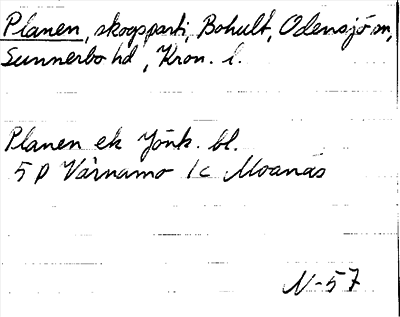 Planen, skogsparti, Bohult, Odensjö sn,
Sunnerbo hd, Kron. l.
Planen ek Jönk. bl.
5 D Värnamo 1c Moanäs
N-57